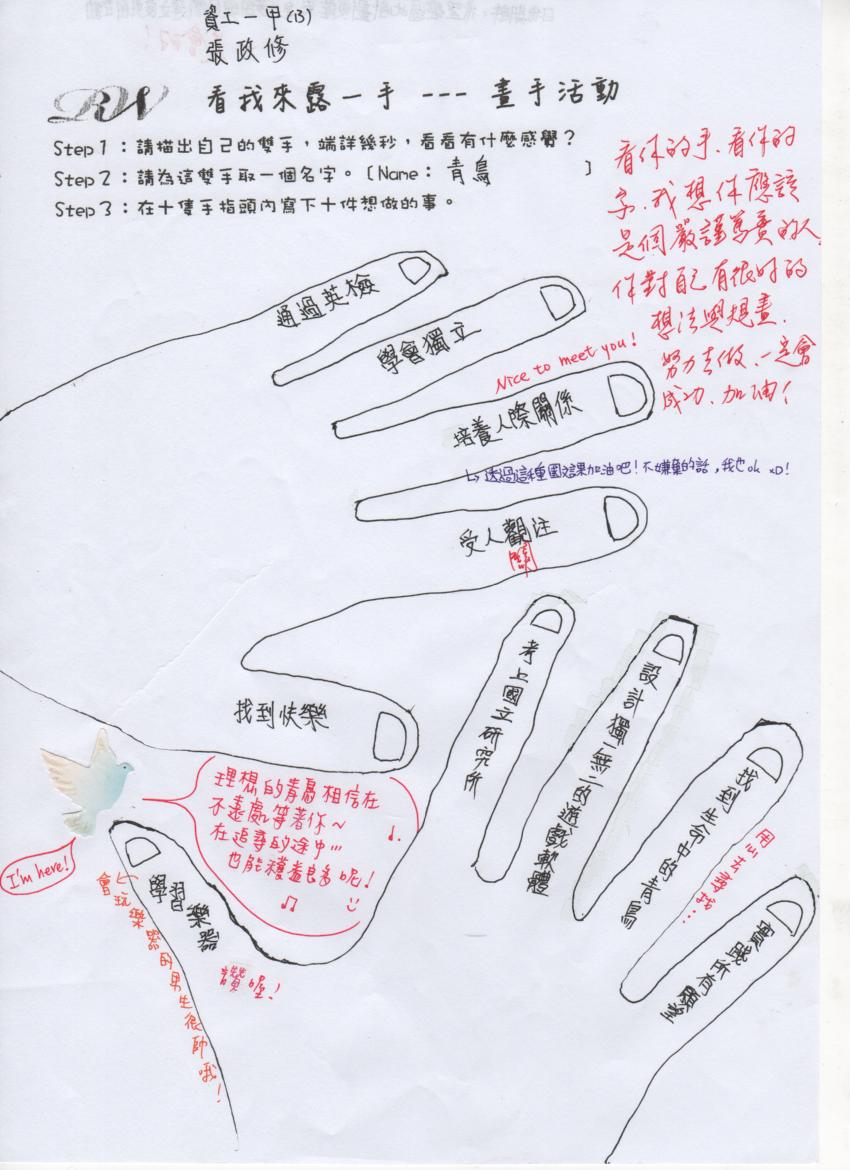 資工一甲(13)
張政修
RW
看我來露一手 --- 畫手活動
Step 1：請描出自己的雙手，端詳幾秒，看看有什麼感覺？
Step 2：請為這雙手取一個名字。〔Name： 青鳥 〕
Step 3：在十隻手指頭內寫下十件想做的事。
看你的手、看你的
字、我想你應該
是個嚴謹篤實的人
你對自己有很好的
想法與規畫、
努力去做、一定會
成功、加油！
通過英檢
學會獨立
Nice to meet you!
培養人際關係
↳ 透過這種國文課加油吧！不嫌棄的話，我也ok xD!
受人觀注
關
找到快樂
考上國立研究所
設計獨一無二的遊戲軟體
找到生命中的青鳥
用心去尋找...
實踐所有願望
理想的青鳥相信在
不遠處等著你~
在追尋的途中...
也能穫益良多呢！
I'm here!
學習樂器
會玩樂器的男生很帥哦！
讚喔！